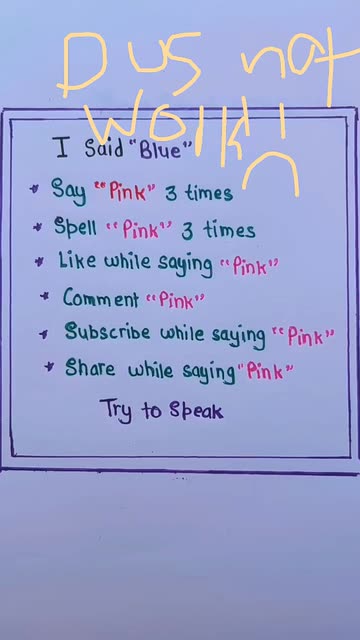 Dus not
Work!!
n
I Said "Blue"
* Say "Pink" 3 times
* Spell "Pink" 3 times
* Like while saying "Pink"
* Comment "Pink"
* Subscribe while saying "Pink"
* Share while saying "Pink"
Try to Speak